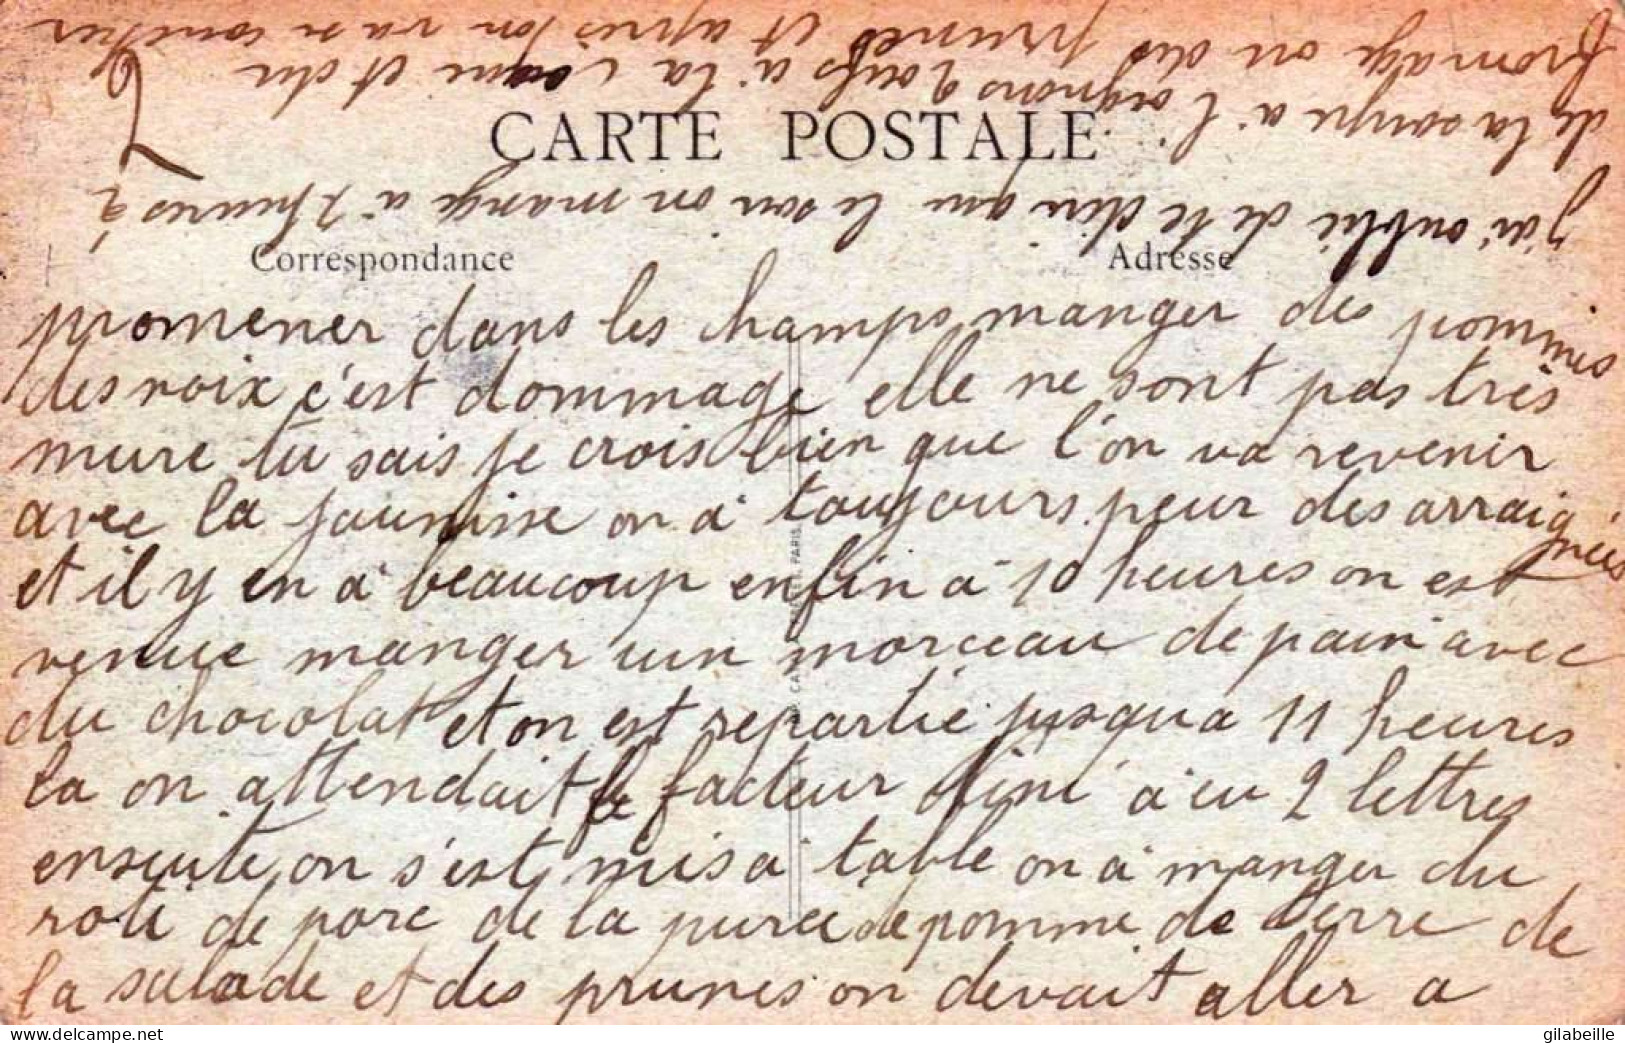 CARTE POSTALE
Correspondance
Adresse
promener dans les champs manger des pommes
des noix c'est dommage elle ne sont pas très
mure tu sais je crois bien que l'on va revenir
avec la jaunisse on à toujours peur des arraignées
et il y en à beaucoup enfin à 10 heures on est
venue manger un morceau de pain avec
du chocolat et on est repartie jusqua 11 heures
la on attendait le facteur Mimi à eu 2 lettres
ensuite on s'est mis a table on à manger du
roti de porc de la puree de pomme de terre de
la salade et des prunes on devait aller a
j'ai oublié de te dire que le soir on mange à 7 heures ¼
de la soupe à l'oignons 2 oeufs a la coque et du
fromage ou des prunes et apres l'on va se coucher
gilabeille